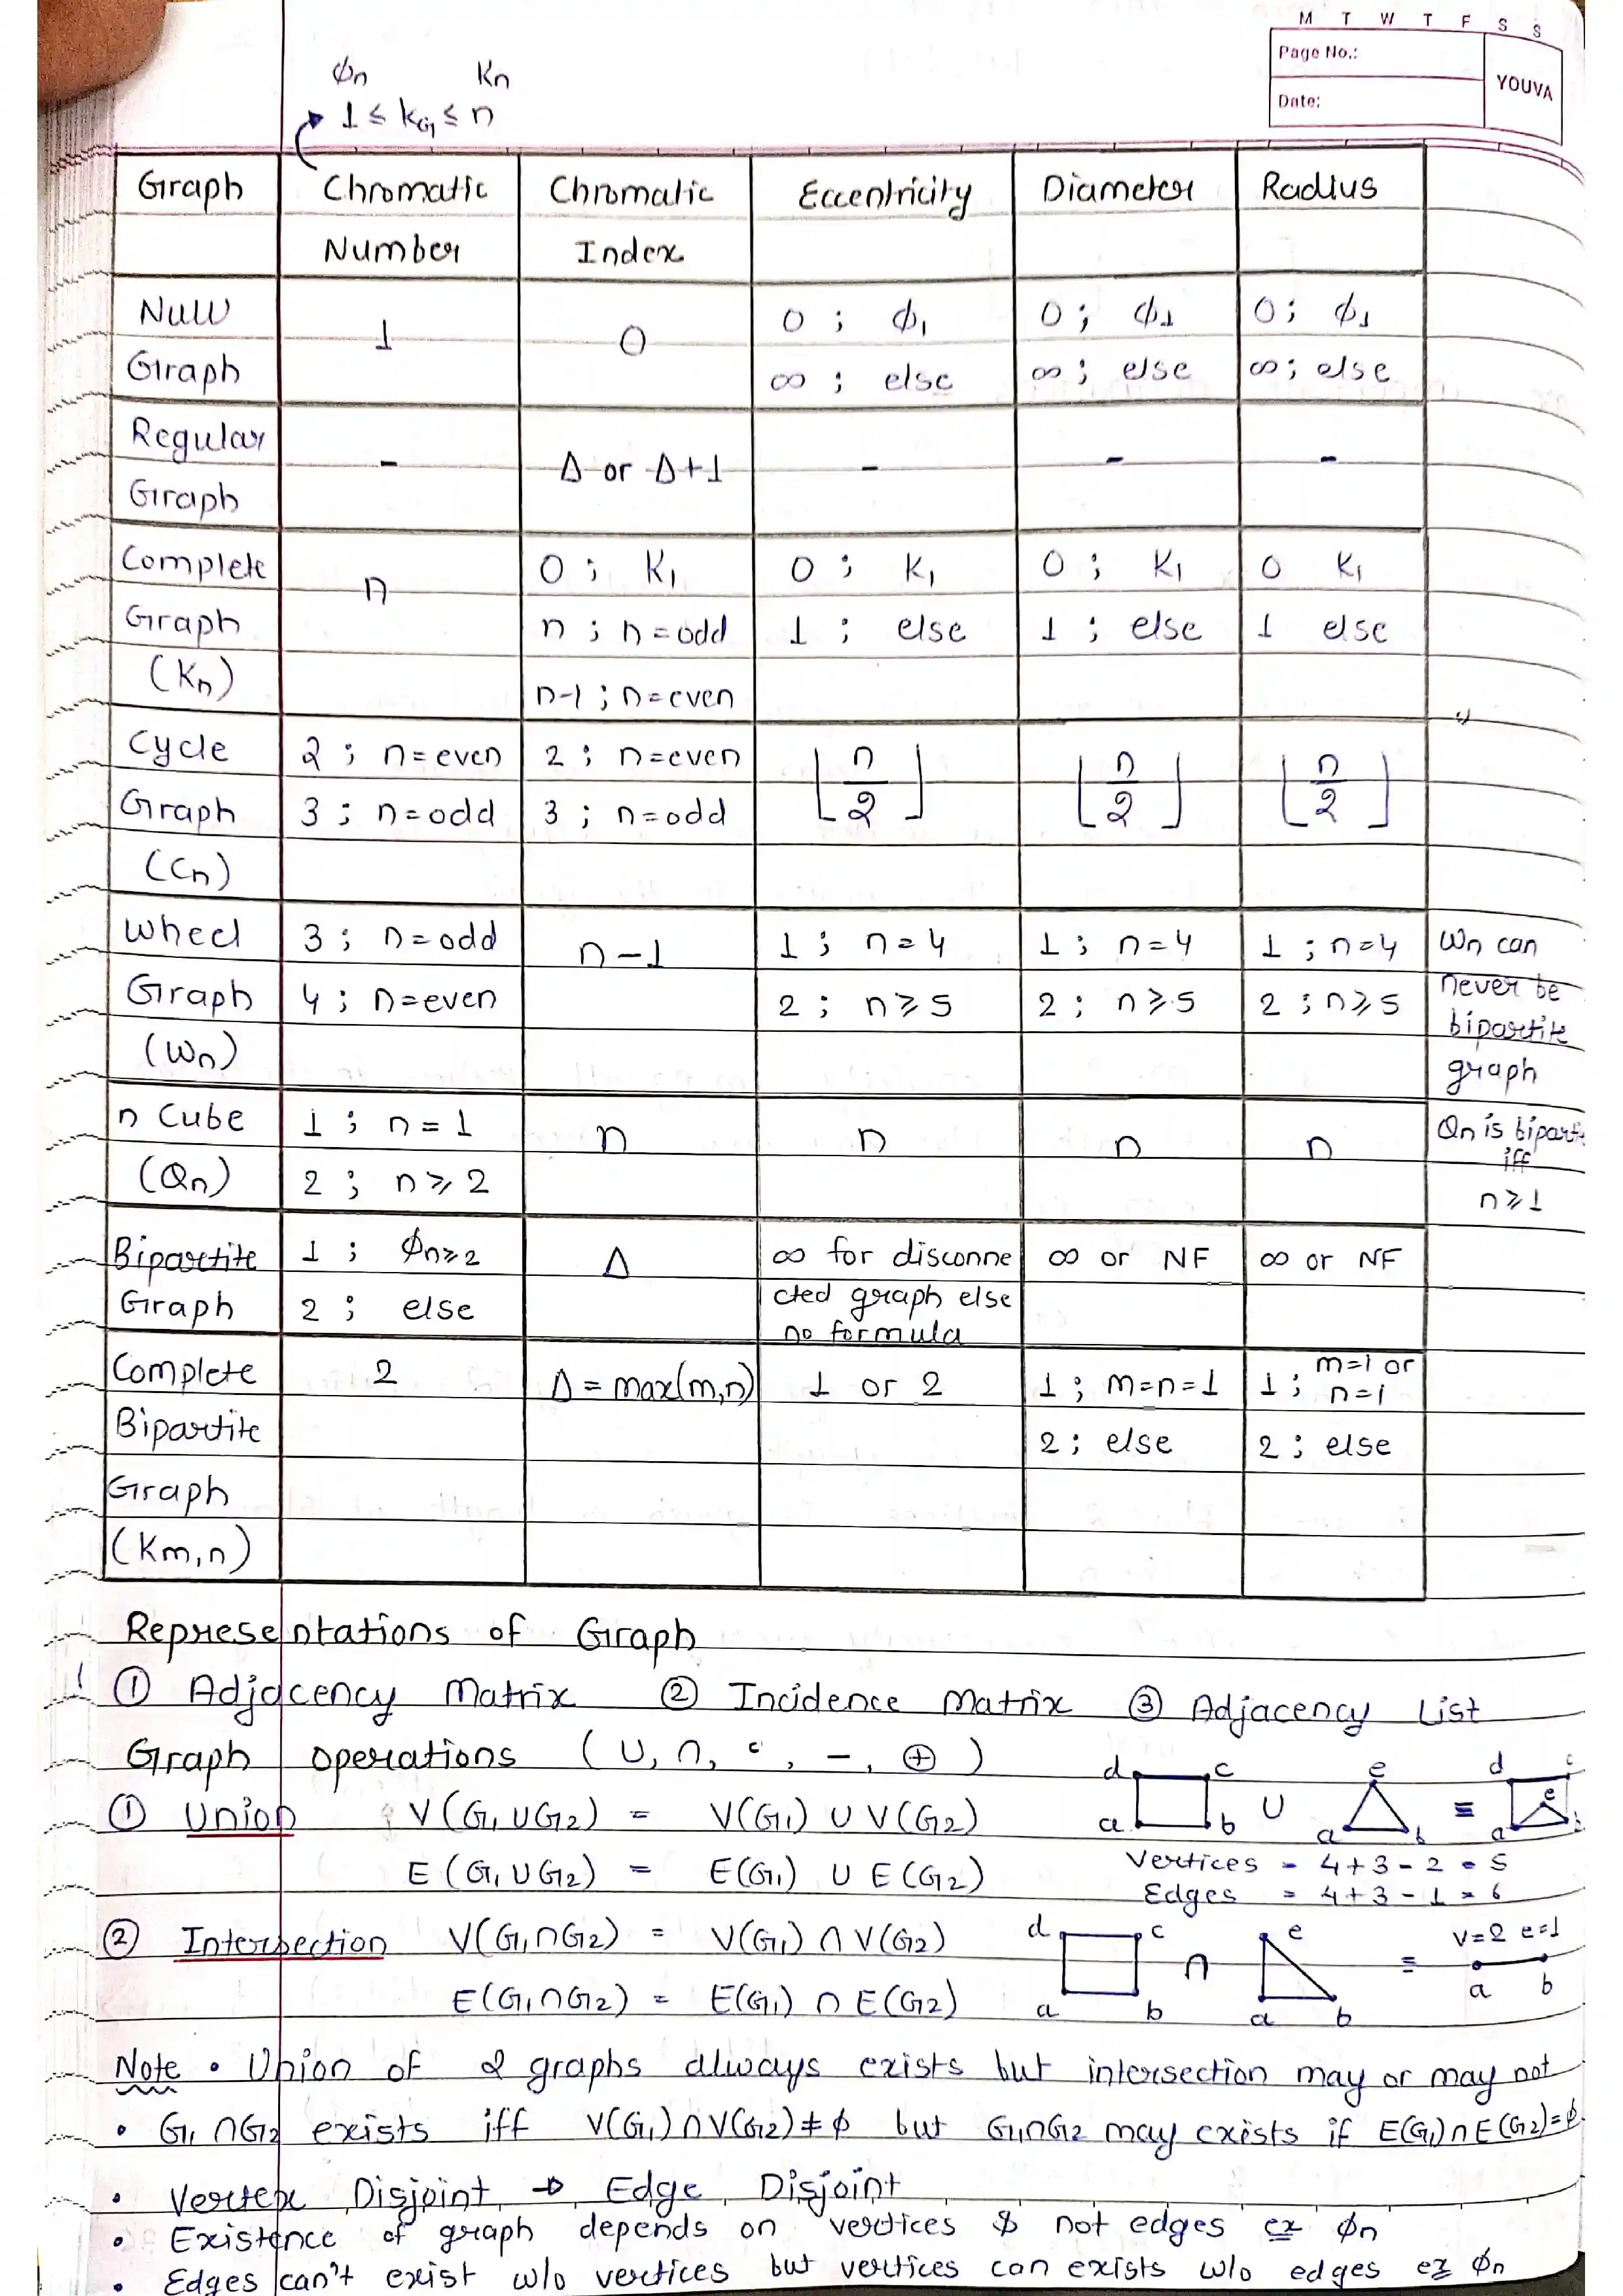 M T W T F S S
Page No.:
Date:
YOUVA
ϕn Kn
1 ≤ kG ≤ n
Graph | Chromatic Number | Chromatic Index | Eccentricity | Diameter | Radius
Null Graph | 1 | 0 | 0 ; ϕ1 | 0 ; ϕ1 | 0 ; ϕ1
∞ ; else | ∞ ; else | ∞ ; else
Regular Graph | - | Δ or Δ+1 | - | - | -
Complete Graph (Kn) | n | 0 ; K1 | 0 ; K1 | 0 ; K1 | 0 K1
n ; n = odd | 1 ; else | 1 ; else | 1 else
n-1 ; n = even
Cycle Graph (Cn) | 2 ; n = even | 2 ; n = even | ⌊n/2⌋ | ⌊n/2⌋ | ⌊n/2⌋
3 ; n = odd | 3 ; n = odd
Wheel Graph (Wn) | 3 ; n = odd | n-1 | 1 ; n = 4 | 1 ; n = 4 | 1 ; n = 4 | Wn can never be bipartite graph
4 ; n = even | 2 ; n ≥ 5 | 2 ; n ≥ 5 | 2 ; n ≥ 5
n Cube (Qn) | 1 ; n = 1 | n | n | n | n | Qn is biparti iff n ≥ 1
2 ; n ≥ 2
Bipartite Graph | 1 ; ϕn≥2 | Δ | ∞ for disconnected graph else no formula | ∞ or NF | ∞ or NF
2 ; else
Complete Bipartite Graph (Km,n) | 2 | Δ = max(m,n) | 1 or 2 | 1 ; m=n=1 | 1 ; m=1 or n=1
2 ; else | 2 ; else
Representations of Graph
① Adjacency Matrix ② Incidence Matrix ③ Adjacency List
Graph operations ( ∪, ∩, c, −, ⊕ )
① Union V(G1 ∪ G2) = V(G1) ∪ V(G2)
d c a b ∪ e a b ≡ d c e a b
E(G1 ∪ G2) = E(G1) ∪ E(G2)
Vertices = 4+3-2 = 5
Edges = 4+3-1 = 6
② Intersection V(G1 ∩ G2) = V(G1) ∩ V(G2)
d c a b ∩ e a b ≡ v=2 e=1 a b
E(G1 ∩ G2) = E(G1) ∩ E(G2)
Note • Union of 2 graphs always exists but intersection may or may not
• G1 ∩ G2 exists iff V(G1) ∩ V(G2) ≠ ϕ but G1 ∩ G2 may exists if E(G1) ∩ E(G2) = ϕ
• Vertex Disjoint → Edge Disjoint
• Existence of graph depends on vertices & not edges ex ϕn
• Edges can't exist w/o vertices but vertices can exists w/o edges ex ϕn